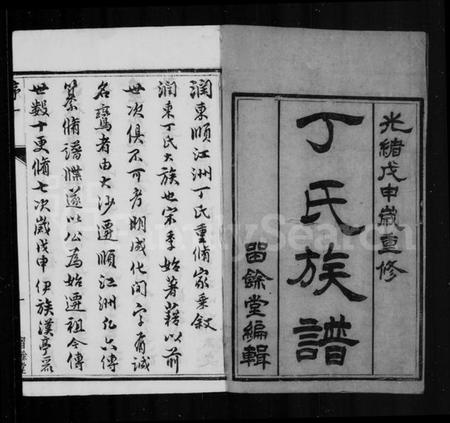 光緒戊申歲重修
丁氏族譜
留餘堂編輯
潤東順江洲丁氏重脩家乘敘
潤東丁氏大族也宋季始著籍以前
世次俱不可考明成化間字有誠
名鸞者由大沙遷順江洲凡六傳
纂脩譜牒遂以公為始遷祖今傳
世數十更脩七次歲戊申伊族漢亭
FamilySearch